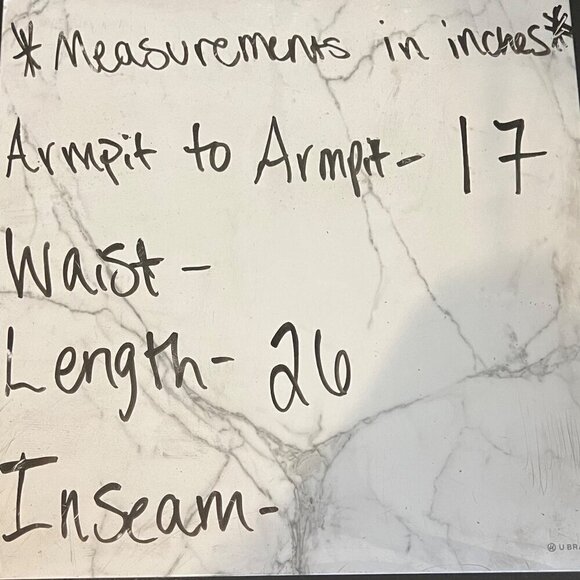 *Measurements in inches*
Armpit to Armpit- 17
Waist -
Length- 26
Inseam-
U BR